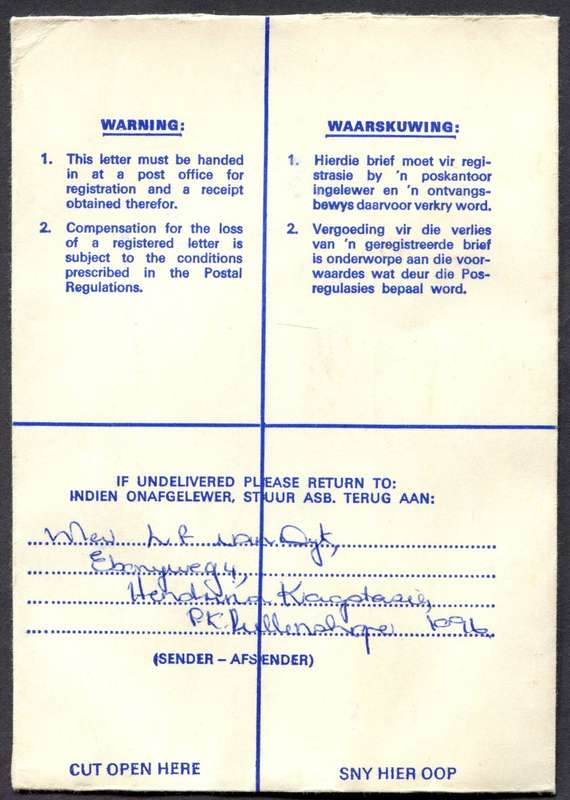 WARNING:
1. This letter must be handed
in at a post office for
registration and a receipt
obtained therefor.
2. Compensation for the loss
of a registered letter is
subject to the conditions
prescribed in the Postal
Regulations.
WAARSKUWING:
1. Hierdie brief moet vir regi-
strasie by 'n poskantoor
ingelewer en 'n ontvangs-
bewys daarvoor verkry word.
2. Vergoeding vir die verlies
van 'n geregistreerde brief
is onderworpe aan die voor-
waardes wat deur die Pos-
regulasies bepaal word.
IF UNDELIVERED PLEASE RETURN TO:
INDIEN ONAFGELEWER, STUUR ASB. TERUG AAN:
Mev. van Dyk,
Ebonyweg 4,
Hendrina Kragstasie,
P.K. Pullenshope 1096
(SENDER – AFSENDER)
CUT OPEN HERE
SNY HIER OOP